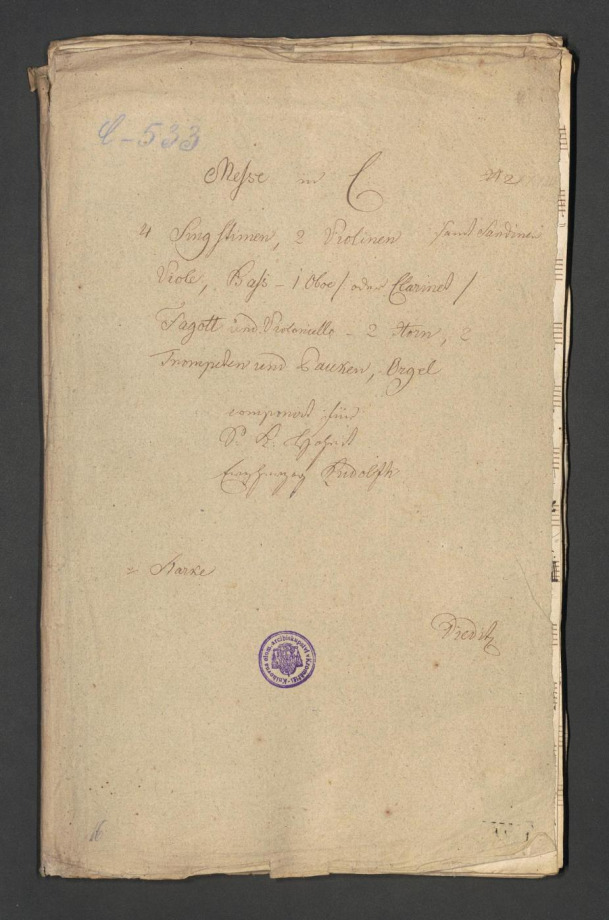 C-533
Messe in C № 2
4 Singstimen, 2 Violinen
Viole, Baß - 1 Oboe / oder Clarinet /
Fagott und Violoncello - 2 Horn, 2
Trompeten und Paucken, Orgel
componirt für
Sr K. Hoheit
Erzherzog Rudolph
= Starke